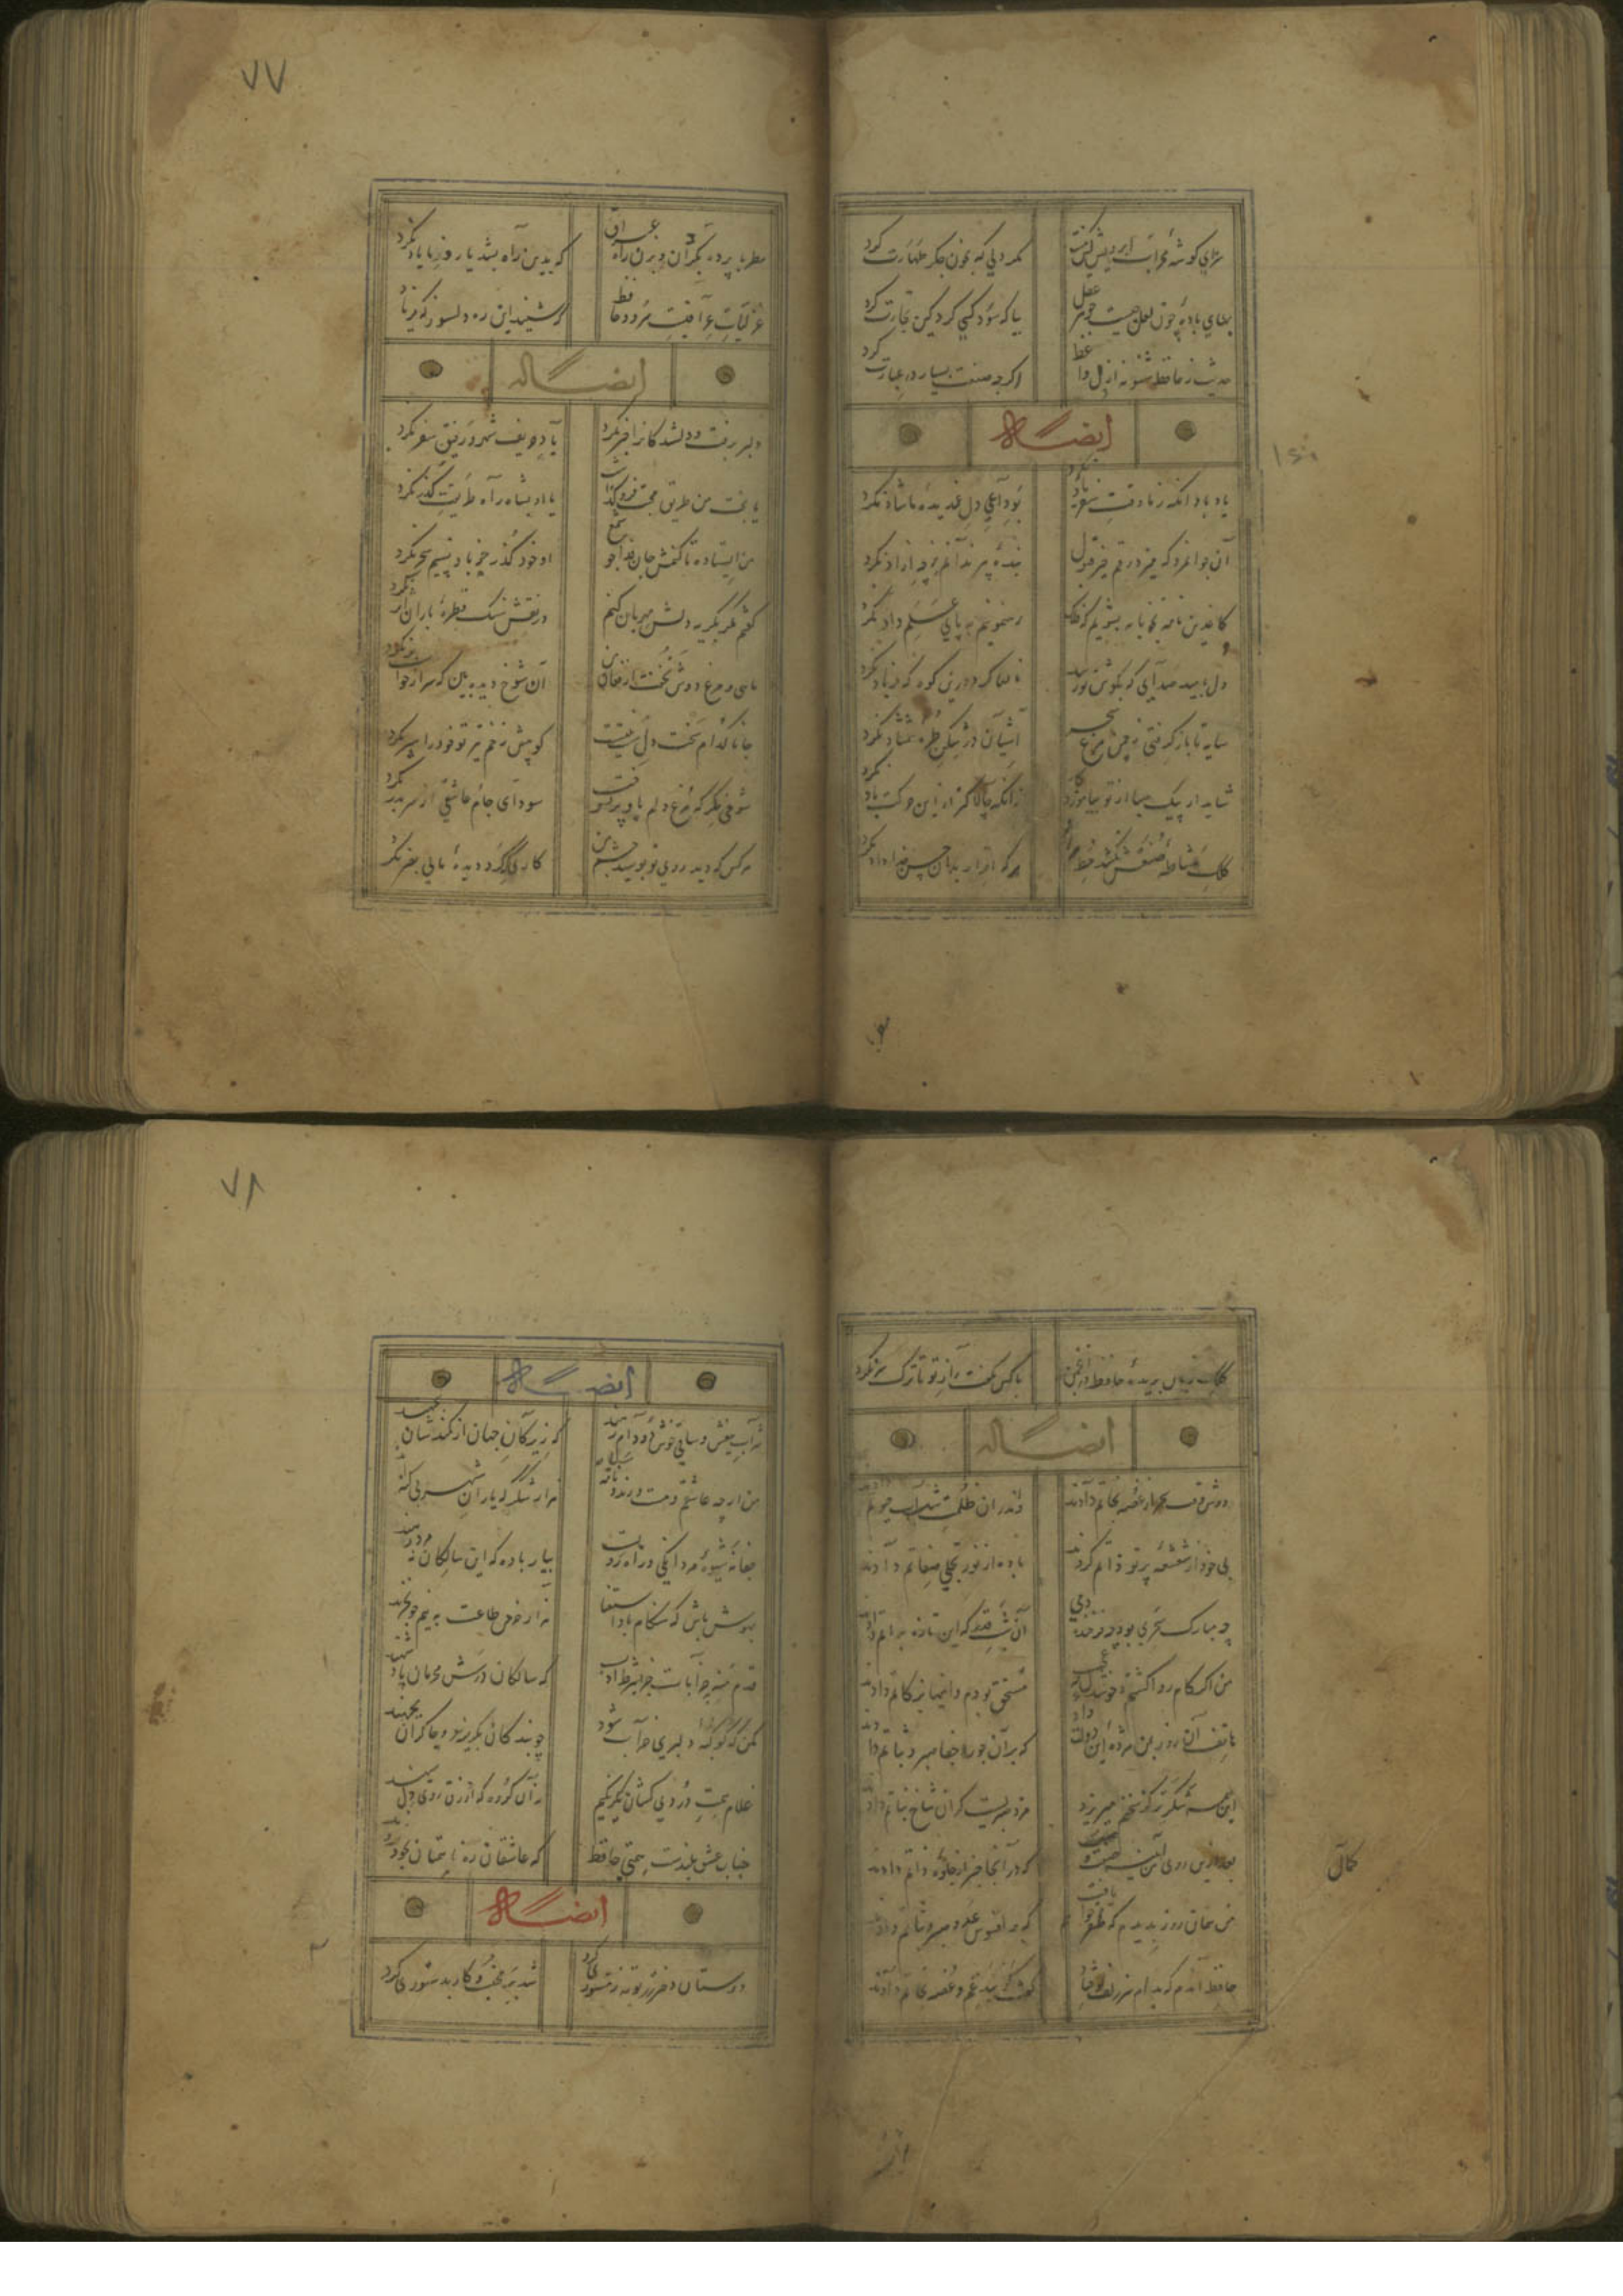 نمازی گوشه محراب ابرویش گفت
کمر دلی که بخون جگر طهارت کرد
بهای باده چون لعل چیست جوهر عقل
بیا که سود کسی کرد کین تجارت کرد
حدیث ز حافظ شنو نه از واعظ
اگر چه صنعت بسیار در عبارت کرد
ایضاً له
یاد باد آنکه ز ما وقت سفر یاد نکرد
بوداعی دل غمدیده ما شاد نکرد
آن جوانمرد که میزد رقم خیر قبول
بنده پیر ندانم ز چه آزاد نکرد
کاغذین جامه بخونابه بشویم که فلک
رهنمونیم به پای علم داد نکرد
دل بامید صدایی که بگوش تو رسد
نالها کرد درین کوه که فرهاد نکرد
سایه تا باز گرفتی ز چمن مرغ سحر
آشیان در شکن طره شمشاد نکرد
شاید ار پیک صبا از تو بیاموزد کار
زانکه چالاکتر از این حرکت باد نکرد
کلک مشاطه صنعش نکشد خط مراد
هر که اقرار بدین حسن خداداد نکرد
۷۷
مطربا پرده بگردان و بزن راه عراق
که بدین راه بشد یار و ز ما یاد نکرد
غزلیات عراقیست سرود حافظ
که شنید این ره دلسوز که فریاد نکرد
ایضاً له
دلبر برفت و دلشدگان را خبر نکرد
یاد حریف شهر و رفیق سفر نکرد
یا بخت من طریق محبت فرو گذاشت
یا او بشاه راه طریقت گذر نکرد
من ایستاده تا کنمش جان فدا چو شمع
او خود گذر چو باد نسیم سحر نکرد
گفتم مگر بگریه دلش مهربان کنم
در نقش سنگ قطره باران اثر نکرد
ماهی و مرغ دوش نخفت از فغان من
آن شوخ دیده بین که سر از خواب بر نکرد
جانا کدام سخت دل
کو پیش زخم تیر تو خود را سپر نکرد
شوخی نگر که مرغ دلم بال و پر بسوخت
سودای خام عاشقی از سر بدر نکرد
هر کس که دید روی تو بوسید چشم من
کاری که کرد دیده ما بی بصر نکرد
کلک زبان بریده حافظ در انجمن
با کس نگفت راز تو تا ترک سر نکرد
ایضاً له
دوش وقت سحر از غصه نجاتم دادند
وندران ظلمت شب آب حیوتم دادند
بی خود از شعشعه پرتو ذاتم کردند
باده از نور تجلی صفاتم دادند
چه مبارک سحری بود و چه فرخنده شبی
آن شب قدر که این تازه براتم دادند
من اگر کام روا گشتم و خوشدل چه عجب
مستحق بودم و اینها بزکاتم دادند
هاتف آن روز بمن مژده این دولت داد
که بر آن جور و جفا صبر و ثباتم دادند
این همه شکر کز سخنم میریزد
مزد صبریست کزان شاخ نباتم دادند
بعد ازین روی من و آینه
که در آنجا خبر از جلوه ذاتم دادند
جمال
من همان روز بدیدم که ظفر خواهم یافت
که بر افسوس عدو صبر و ثباتم دادند
حافظ آندم که
که ز بند غم و غصه نجاتم دادند
۷۸
ایضاً له
شراب بیغش و ساقی خوش دو دام رهند
که زیرکان جهان از کمندشان نجهند
من ارچه عاشقم و مست و رند و نامه سیاه
هزار شکر که یاران شهر بی گنهند
جفا نه شیوه مردانگیست در راه
بیار باده که این سالکان نه مرد رهند
بهوش باش که هنگام باد استغنا
هزار خرمن طاعت به نیم جو ننهند
قدم منه بخرابات جز بشرط ادب
که سالکان درش محرمان پادشهند
مکن که کوکبه دلبری خراب شود
چو بندگان بگریزند و چاکران بجهند
غلام همت دردی کشان یک رنگیم
نه آن گروه که ازرق ردای و دل سیهند
جناب عشق بلندست همتی حافظ
که عاشقان ره بی همتان بخود ندهند
ایضاً له
دوستان دختر رز توبه ز مستوری کرد
شد بر محتسب و کار بدستوری کرد